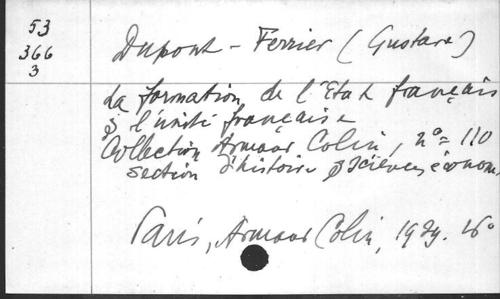 53
366
3
Dupont-Ferrier (Gustave)
La formation de l'Etat français
& l'unité française
Collection Armand Colin, n° 110
section d'histoire & sciences économ.
Paris, Armand Colin, 1929. 16°